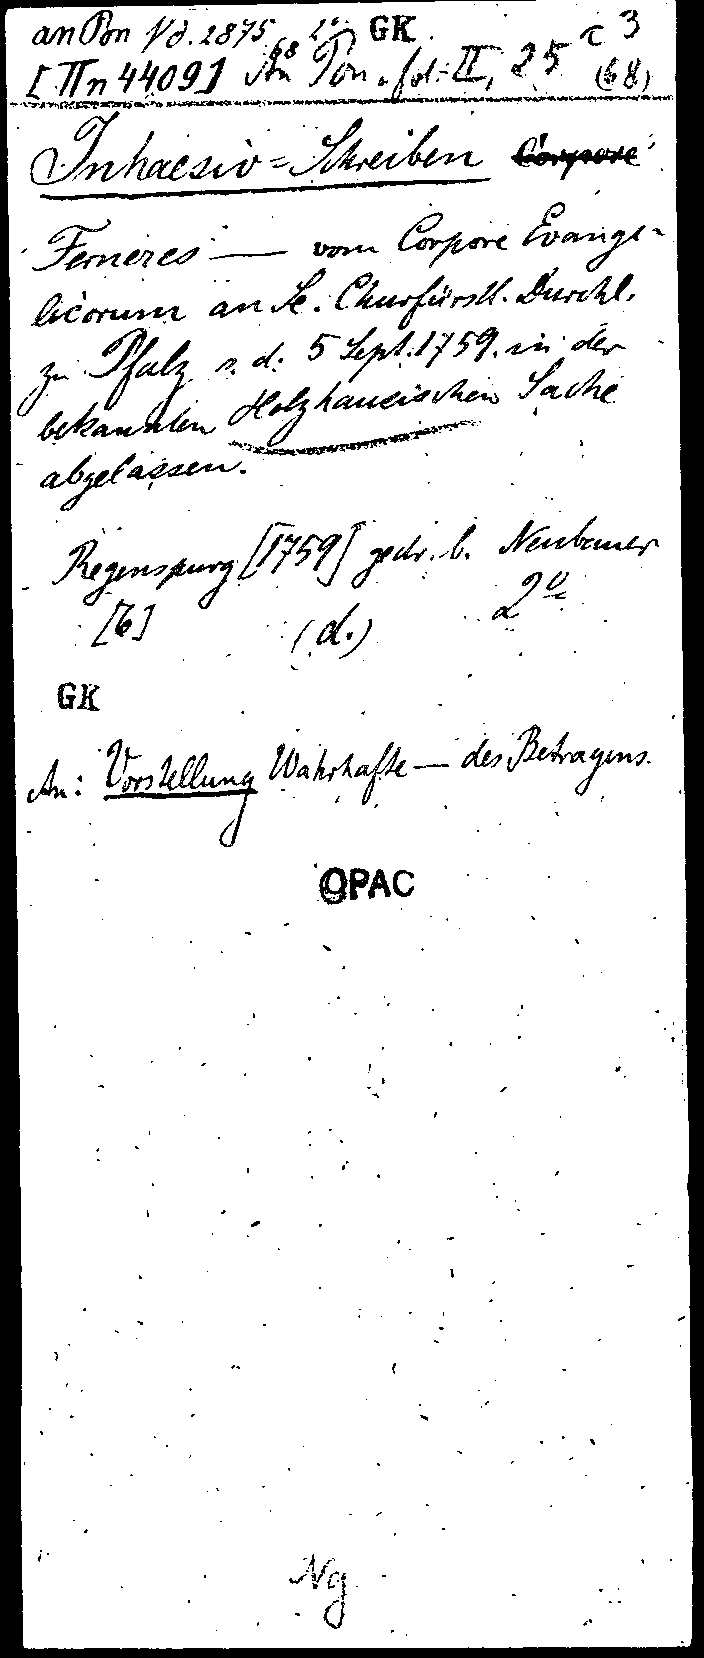 an Pon Vd. 2875 2° GK
[IIn 4409] An Pon. fol. II, 25 c 3 (68)
Inhaesiv-Schreiben Corpore
Ferneres — vom Corpore Evange-
licorum an Se. Churfürstl. Durchl.
zu Pfalz s. d. 5 Sept. 1759. in der
bekannten Holzhausischen Sache
abgelassen.
Regenspurg [1759] gedr. b. Neubauer
[6] (d.) 2°
GK
An: Vorstellung Wahrhafte — des Betragens.
OPAC
Ng